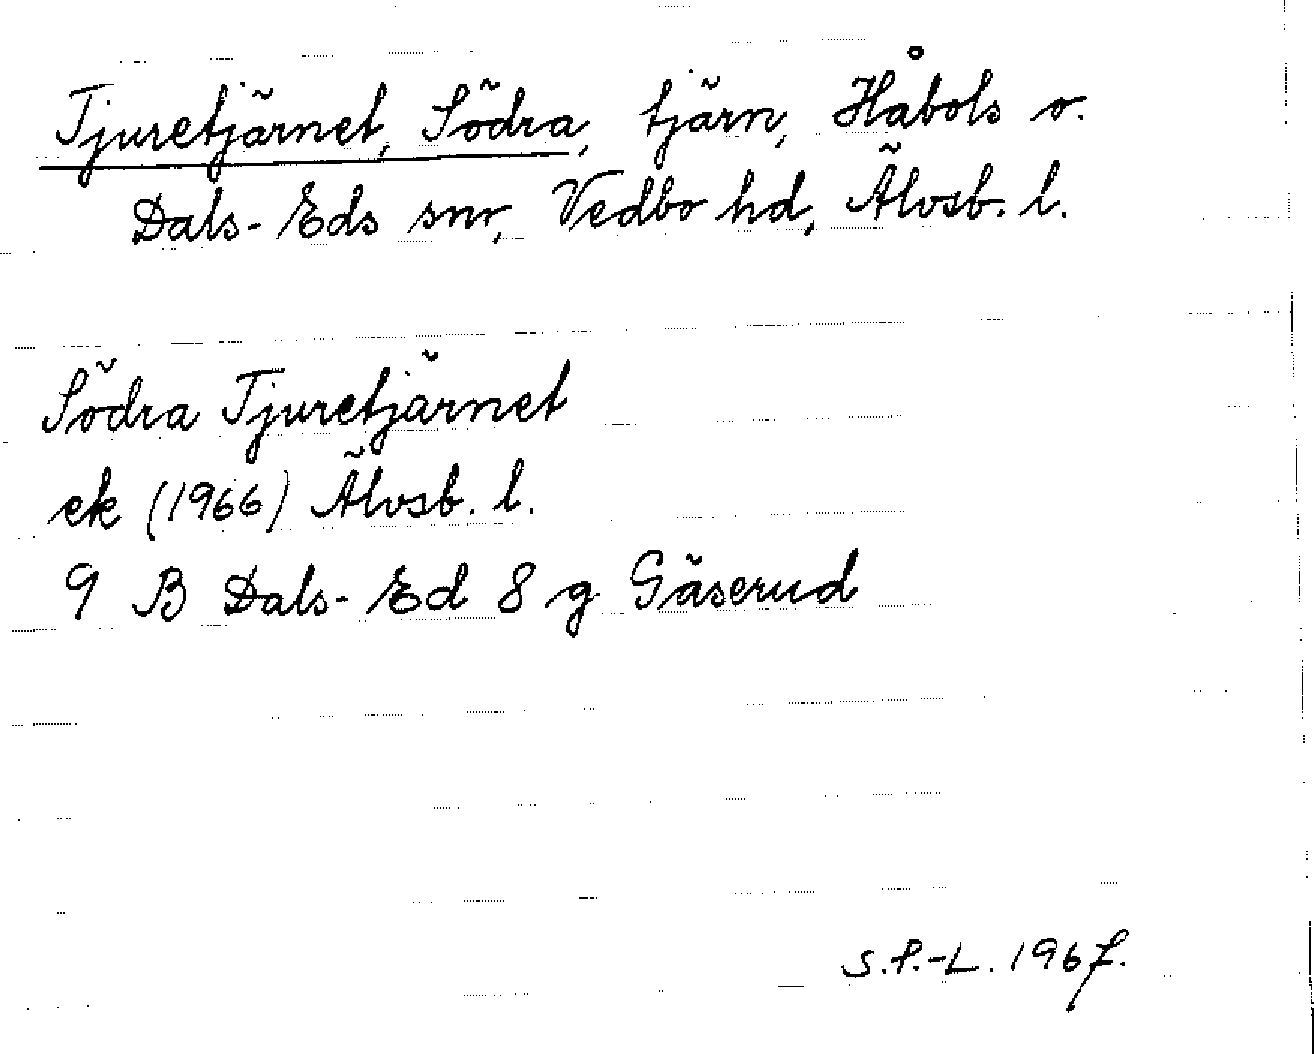 Tjuretjärnet, Södra, tjärn, Håbols o.
Dals-Eds snr, Vedbo hd, Älvsb. l.
Södra Tjuretjärnet
ek (1966) Älvsb. l.
9 B Dals-Ed 8 g Gäserud
S.P.-L. 1967.